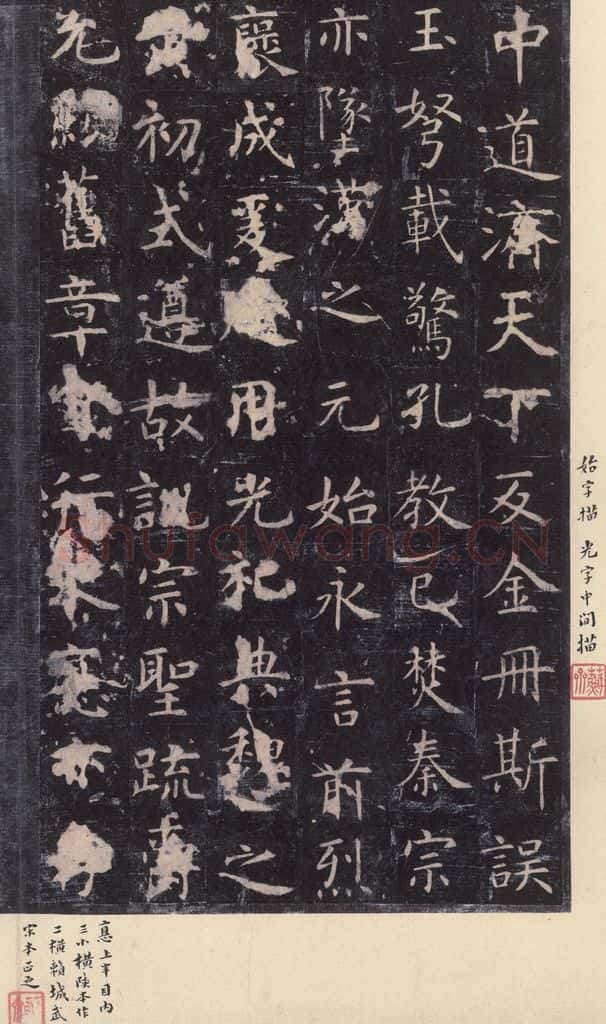 中道濟天下及金冊斯誤
玉弩載驚孔教已焚秦宗
亦墜漢之元始永言前烈
褒成爰用光祀典魏之
初式遵故訓宗聖疏
允緝舊章行水悳亦存
始字描 光字中间描
悳上半目内
三小橫陕本作
二橫賴城武
宋本正之
Shufawang.CN